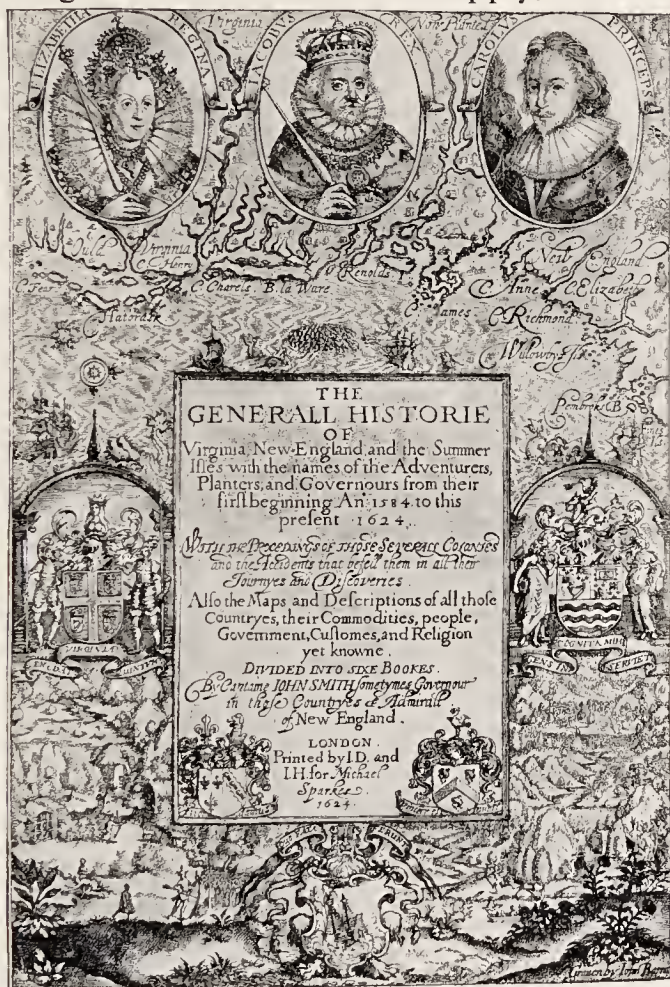 ELIZABETHA REGINA
IACOBUS REX
CAROLUS PRINCEPS
Virginia Now Planted
Ould Virginia
C. Henry
C. Fear
C. Hatorask
C. Charels
B. la Ware
Renolds
New England
C. Anne
C. Elizabeth
James
C. Richmond
Willowbys Iſles
Pembrok B
THE
GENERALL HISTORIE
OF
Virginia, New-England, and the Summer
Iſles with the names of the Adventurers,
Planters, and Governours from their
firſt beginning An: 1584. to this
present 1624.
WITH THE PROCEDINGS OF THOSE SEVERALL COLONIES
and the Accidents that befell them in all their
Journyes and Diſcoveries.
Also the Maps and Deſcriptions of all those
Countryes, their Commodities, people,
Government, Cuſtomes, and Religion
yet knowne.
DIVIDED INTO SIXE BOOKES.
By Captaine IOHN SMITH ſometymes Governour
in thoſe Countryes & Admirall
of New England.
LONDON.
Printed by I.D. and
I.H. for Michael
Sparkes.
1624.
VIRGINIA